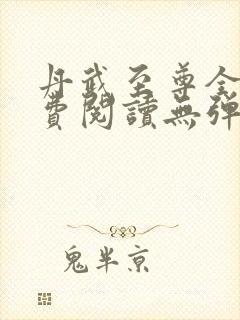 丹武至尊全
費閱讀無彈
鬼半京